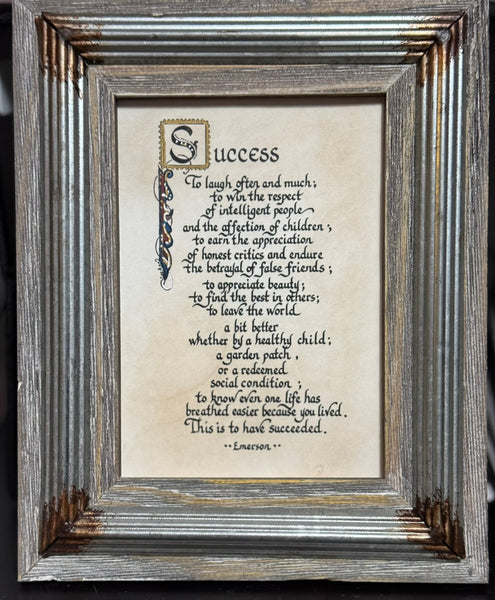 Success
To laugh often and much;
to win the respect
of intelligent people
and the affection of children;
to earn the appreciation
of honest critics and endure
the betrayal of false friends;
to appreciate beauty;
to find the best in others;
to leave the world
a bit better
whether by a healthy child;
a garden patch,
or a redeemed
social condition;
to know even one life has
breathed easier because you lived.
This is to have succeeded.
··Emerson··